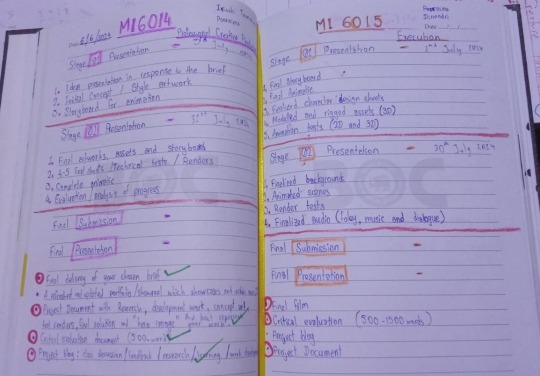 MI6014
Date: 6/6/2024
Professional Creative
Stage 01 Presentation - July 2024
1. Idea presentation in response to the brief
2. Initial Concept / Style artwork
3. Storyboard for animation
Stage 02 Presentation - 31st July 2024
1. Final artworks, assets and storyboard
2. 3-5 Technical tests / Renders
3. Complete animatic
4. Evaluation / analysis of progress
Final Submission -
Final Presentation -
Final delivery of your chosen brief
• A refreshed and updated portfolio / showreel which showcases
Project Document with Research, development work, concept art,
test renders, final solution and
Critical evaluation document (500 words)
Project blog: discussion / feedback / research / learning /
MI 6015
Execution
Stage 01 Presentation - July 2024
1. Final Storyboard
2. Final Animatic
3. Finalized character design sheets
4. Modelled and rigged assets (3D)
5. Animation tests (2D and 3D)
Stage 02 Presentation - 30th July 2024
1. Finalized backgrounds
2. Animated scenes
3. Render tests
4. Finalized audio (foley, music and dialogue)
Final Submission -
Final Presentation -
Final film
Critical evaluation (500-1500 words)
Project blog
Project Document